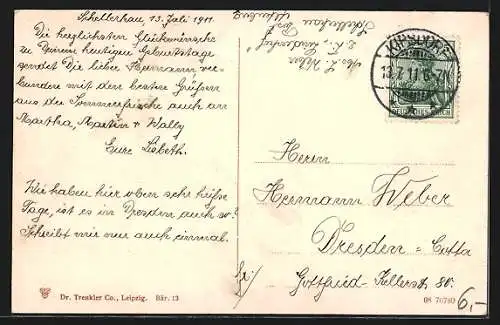 Schellerhau, 13. Juli 1911.
Die herzlichsten Glückwünsche
zu Deinem heutigen Geburtstage
sendet Dir liebe Hermann, ver-
bunden mit den besten Grüßen
aus der Sommerfrische auch an
Martha, Martin & Wally
Eure Lisbeth.
Wir haben hier oben sehr heiße
Tage, ist es in Dresden auch so?
Schreibt mir nun auch einmal.
Abs. L. Weber
Schellerhau Post
Kipsdorf
DEUTSCHES REICH
KIPSDORF
13.7.11. 6-7N
Herrn
Hermann Weber
Dresden-Cotta
Gottfried-Kellerstr. 80.
Dr. Trenkler Co., Leipzig. Bär. 13
08 70740
6,-